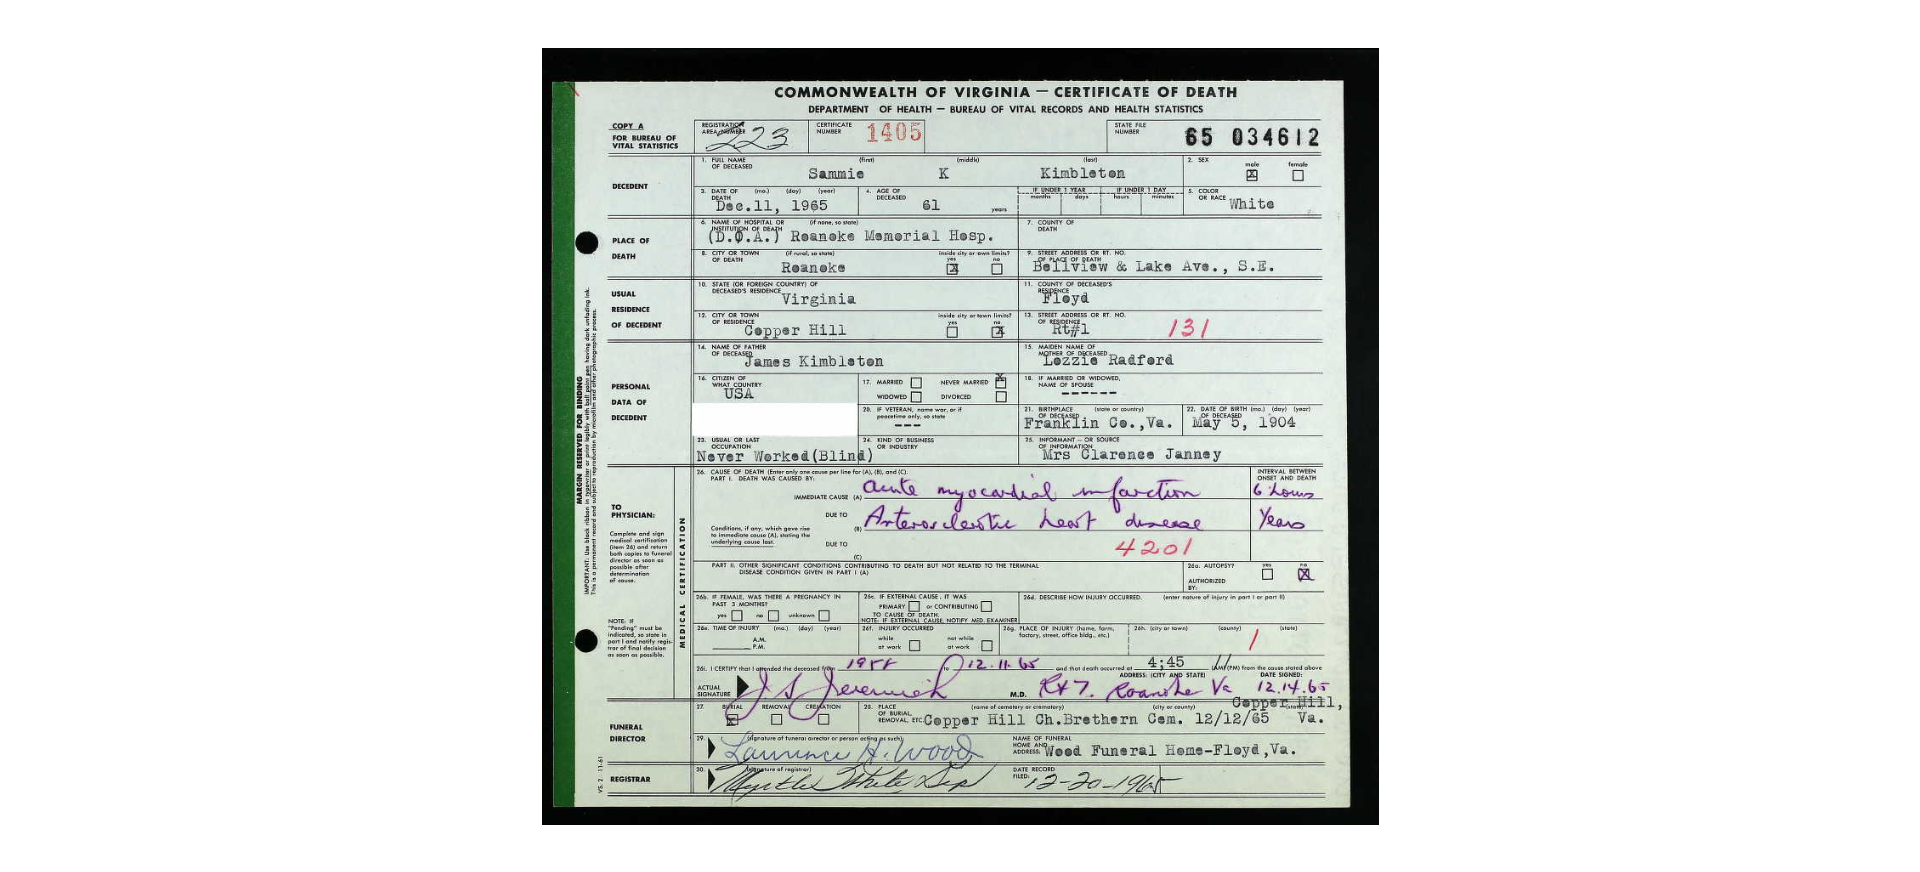 COMMONWEALTH OF VIRGINIA — CERTIFICATE OF DEATH
DEPARTMENT OF HEALTH — BUREAU OF VITAL RECORDS AND HEALTH STATISTICS
COPY A
FOR BUREAU OF
VITAL STATISTICS
REGISTRATION AREA NUMBER 223
CERTIFICATE NUMBER 1405
STATE FILE NUMBER 65 034612
DECEDENT
1. FULL NAME OF DECEASED (first) (middle) (last)
Sammie K Kimbleton
2. SEX male X female
3. DATE OF DEATH (mo.) (day) (year)
Dec.11, 1965
4. AGE OF DECEASED 61 years
IF UNDER 1 YEAR months days
IF UNDER 1 DAY hours minutes
5. COLOR OR RACE White
PLACE OF
DEATH
6. NAME OF HOSPITAL OR INSTITUTION OF DEATH (if none, so state)
(D.O.A.) Roanoke Memorial Hosp.
7. COUNTY OF DEATH
8. CITY OR TOWN OF DEATH (if rural, so state)
Roanoke
inside city or town limits? yes X no
9. STREET ADDRESS OR RT. NO. OF PLACE OF DEATH
Bellview & Lake Ave., S.E.
USUAL
RESIDENCE
OF DECEDENT
10. STATE (OR FOREIGN COUNTRY) OF DECEASED'S RESIDENCE
Virginia
11. COUNTY OF DECEASED'S RESIDENCE
Floyd
12. CITY OR TOWN OF RESIDENCE
Copper Hill
inside city or town limits? yes no X
13. STREET ADDRESS OR RT. NO. OF RESIDENCE
Rt#1 131
PERSONAL
DATA OF
DECEDENT
14. NAME OF FATHER OF DECEASED
James Kimbleton
15. MAIDEN NAME OF MOTHER OF DECEASED
Lozzie Radford
16. CITIZEN OF WHAT COUNTRY
USA
17. MARRIED NEVER MARRIED X
WIDOWED DIVORCED
18. IF MARRIED OR WIDOWED, NAME OF SPOUSE
------
20. IF VETERAN, name war, or if peacetime only, so state
---
21. BIRTHPLACE OF DECEASED (state or country)
Franklin Co.,Va.
22. DATE OF BIRTH OF DECEASED (mo.) (day) (year)
May 5, 1904
23. USUAL OR LAST OCCUPATION
Never Worked(Blind)
24. KIND OF BUSINESS OR INDUSTRY
25. INFORMANT — OR SOURCE OF INFORMATION
Mrs Clarence Janney
MARGIN RESERVED FOR BINDING
TO
PHYSICIAN:
Complete and sign
medical certification
(item 26) and return
both copies to funeral
director as soon as
possible after
determination
of cause.
NOTE: IF
"Pending" must be
indicated, so state in
part I and notify regis-
trar of final decision
as soon as possible.
MEDICAL CERTIFICATION
26. CAUSE OF DEATH (Enter only one cause per line for (A), (B), and (C).
PART I. DEATH WAS CAUSED BY:
INTERVAL BETWEEN ONSET AND DEATH
IMMEDIATE CAUSE (A) acute myocardial infarction 6 hours
DUE TO
(B) Arteriosclerotic heart disease Years
Conditions, if any, which gave rise
to immediate cause (A), stating the
underlying cause last.
DUE TO
(C)
4201
PART II. OTHER SIGNIFICANT CONDITIONS CONTRIBUTING TO DEATH BUT NOT RELATED TO THE TERMINAL
DISEASE CONDITION GIVEN IN PART I (A)
26a. AUTOPSY? yes no X
AUTHORIZED BY:
26b. IF FEMALE, WAS THERE A PREGNANCY IN PAST 3 MONTHS?
yes no unknown
26c. IF EXTERNAL CAUSE, IT WAS
PRIMARY or CONTRIBUTING
TO CAUSE OF DEATH.
NOTE: IF EXTERNAL CAUSE, NOTIFY MED. EXAMINER
26d. DESCRIBE HOW INJURY OCCURRED. (enter nature of injury in part I or part II)
26e. TIME OF INJURY (mo.) (day) (year)
A.M.
P.M.
26f. INJURY OCCURRED
while at work not while at work
26g. PLACE OF INJURY (home, farm, factory, street, office bldg., etc.)
26h. (city or town) (county) (state)
1
26i. I CERTIFY that I attended the deceased from to 12.11.65 and that death occurred at 4;45 (AM/PM) from the cause stated above
ACTUAL SIGNATURE M.D.
ADDRESS: (CITY AND STATE)
Rt 7. Roanoke Va
DATE SIGNED:
12.14.65
FUNERAL
DIRECTOR
27. BURIAL X REMOVAL CREMATION
28. PLACE OF BURIAL, REMOVAL, ETC. (name of cemetery or crematory) (city or county) (state)
Copper Hill Ch.Brethern Cem. 12/12/65 Copper Hill, Va.
29. (signature of funeral director or person acting as such)
Lawrence H. Wood
NAME OF FUNERAL HOME AND ADDRESS:
Wood Funeral Home-Floyd,Va.
REGISTRAR
30. (signature of registrar)
Myrtle White Dep
DATE RECORD FILED:
12-20-1965
VS. 2 11-61